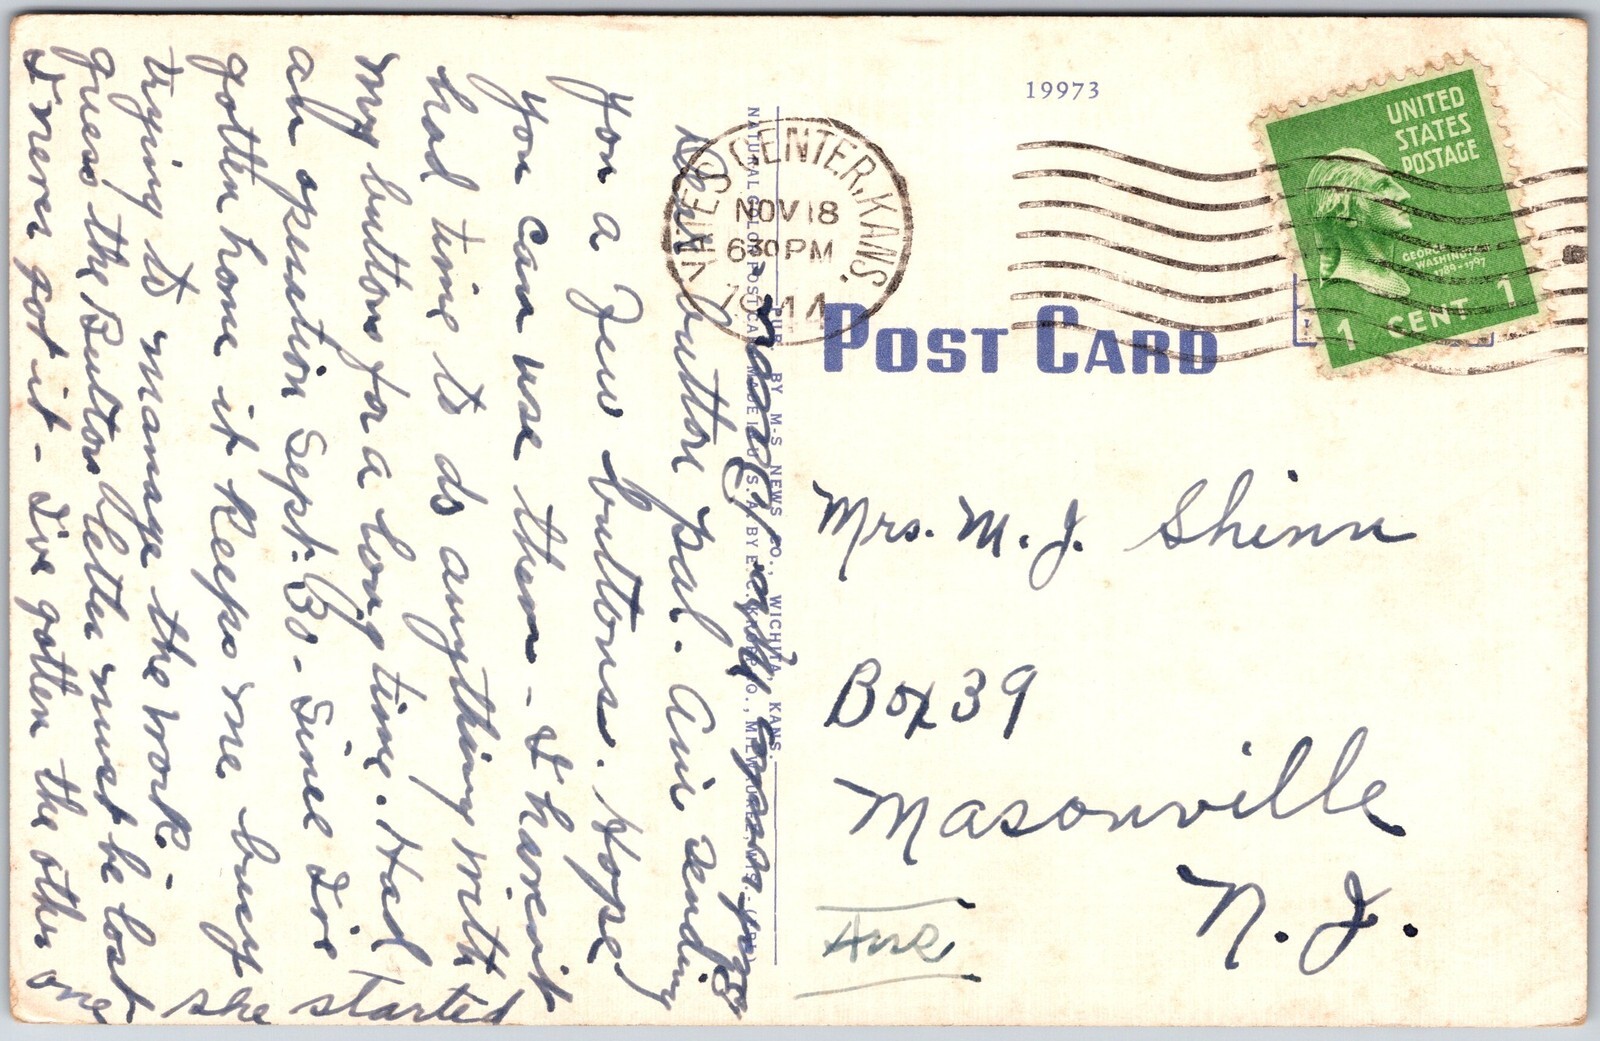 19973
UNITED
STATES
POSTAGE
GEORGE
WASHINGTON
1789-1797
1 CENT 1
NOV 18
6 30 PM
CENTER, KANS.
POST CARD
NATURAL COLOR POST CARD MADE IN U.S.A. BY E. C. KROPP CO., MILWAUKEE, WIS.
PUB. BY M-S NEWS CO., WICHITA, KANS.
button pal. Am sending
you a few buttons. Hope
you can use them - I haven't
had time to do anything with
my buttons for a long time. Had
an operation Sept. 30 - Since I've
gotten home it keeps me busy
trying to manage the work.
guess the Buttons letter must be lost
I never got it - I've gotten the other one
she started
Mrs. M. J. Shinn
Box 39
Masonville
N. J.